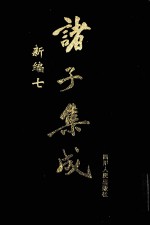 諸子集成
新編七
四川人民出版社